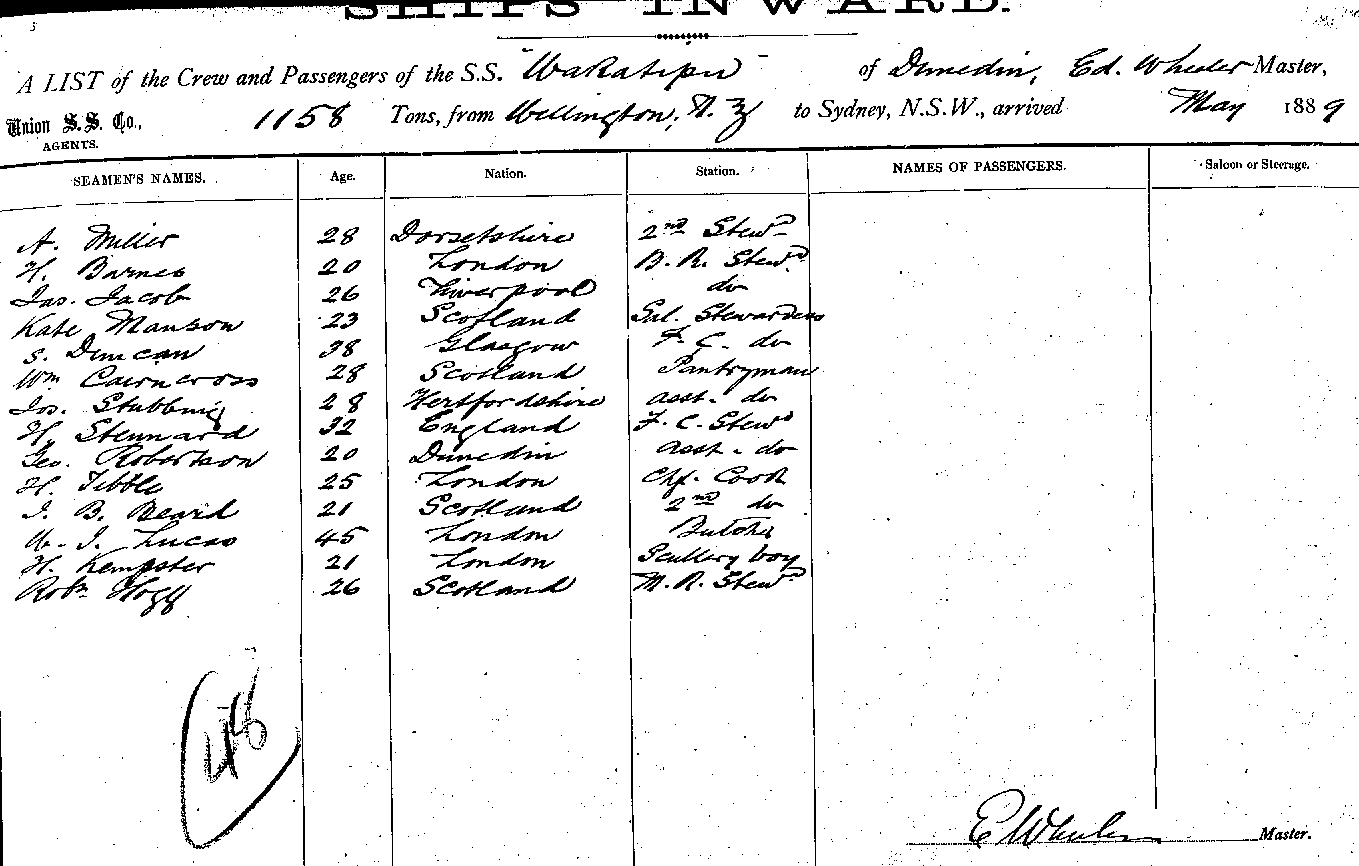 SHIPS INWARD.
A LIST of the Crew and Passengers of the S.S. "Wakatipu" of Dunedin, Ed. Wheeler Master,
Union S.S. Co., AGENTS. 1158 Tons, from Wellington, N.Z to Sydney, N.S.W., arrived May 1889
SEAMEN'S NAMES. Age. Nation. Station. NAMES OF PASSENGERS. Saloon or Steerage.
A. Miller 28 Dorsetshire 2nd Stewd
H. Barnes 20 London B. R. Stewd
Jas. Jacob 26 Liverpool do
Kate Manson 23 Scotland Sal. Stewardess
S. Duncan 38 Glasgow F. C. do
Wm Cairncross 28 Scotland Pantryman
Jos. Stubbing 28 Hertfordshire asst. do
H. Stennard 32 England F. C. Stewd
Geo. Robertson 20 Dunedin asst. do
H. Tibble 25 London Chf. Cook
J. B. Beard 21 Scotland 2nd do
W. J. Lucas 45 London Butcher
H. Kempster 21 London Scullery boy
Robt Hogg 26 Scotland M. R. Stewd
48
E Wheeler Master.